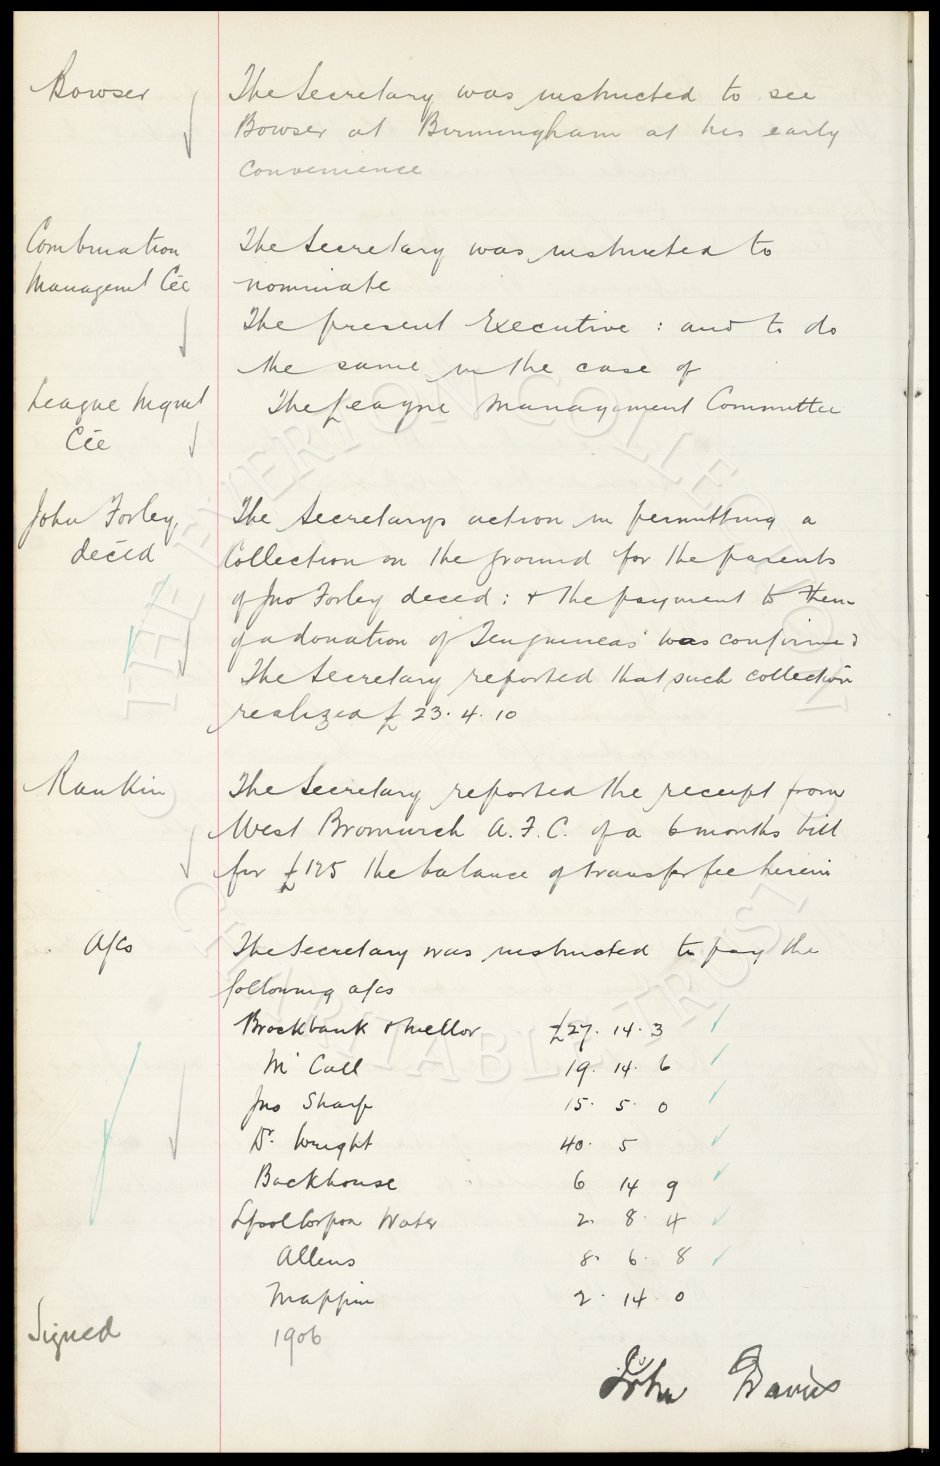 Bowser
The Secretary was instructed to see
Bowser at Birmingham at his early
convenience
Combination
Managemt Cēe
The Secretary was instructed to
nominate
The present Executive : and to do
the same in the case of
League Mgmt
Cēe
The League Management Committee
John Forley,
decēd
The Secretarys action in permitting a
Collection on the ground for the parents
of Jno Forley deced : & the payment to them
of a donation of Ten guineas was confirmed
The Secretary reported that such collection
realized £23. 4. 10
Rankin
The Secretary reported the receipt from
West Bromwich A.F.C. of a 6 months bill
for £125 the balance of transfer fee herein
a/cs
The Secretary was instructed to pay the
following a/cs
Brockbank & Mellor £27. 14. 3
Mc Call 19. 14. 6
Jno Sharp 15. 5. 0
Dr. Wright 40. 5
Backhouse 6 14 9
Lpool Corpon Water 2. 8. 4
Allens 8. 6. 8
Mappin 2. 14. 0
Signed
1906
John Davies
THE EVERTON COLLECTION
CHARITABLE TRUST